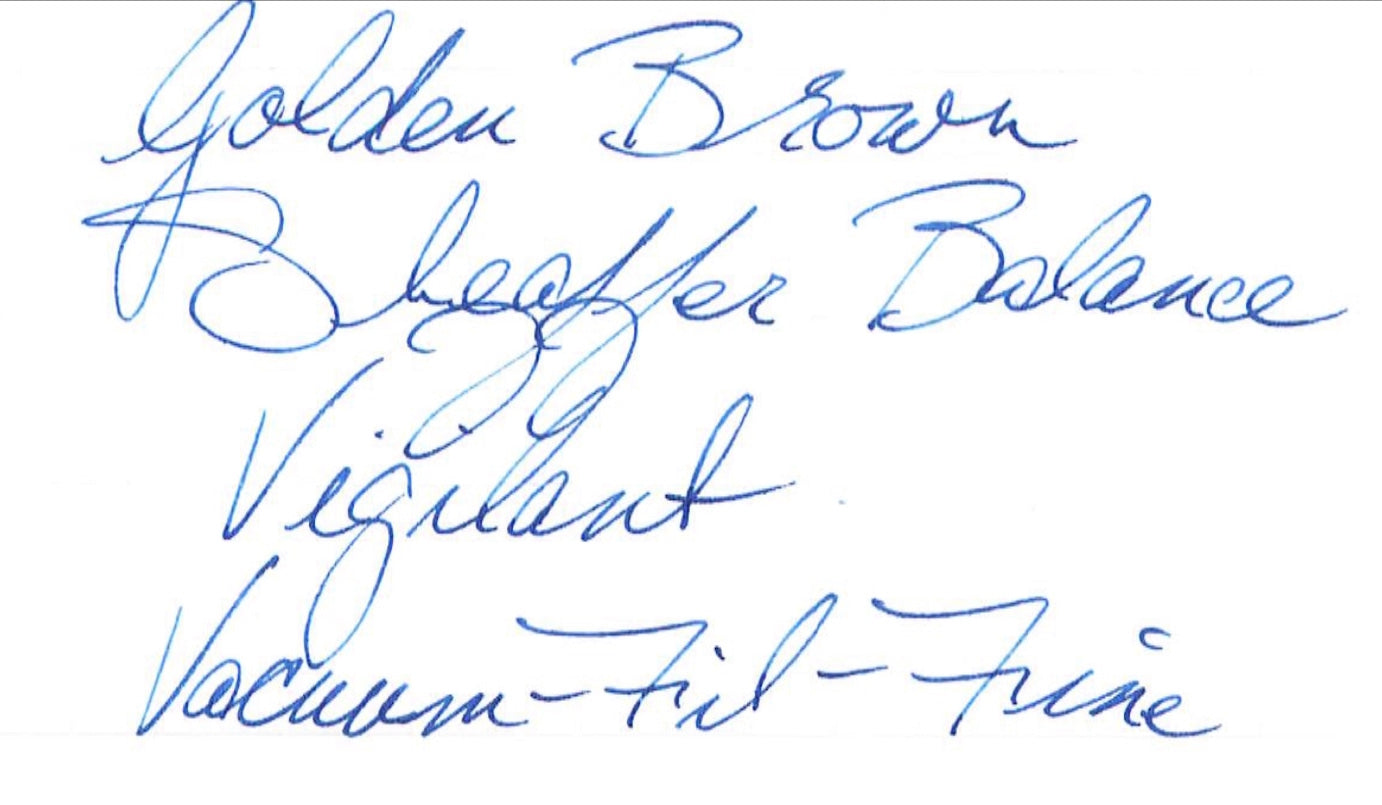 Golden Brown
Sheaffer Balance
Vigilant
Vacuum-Fil-Fine